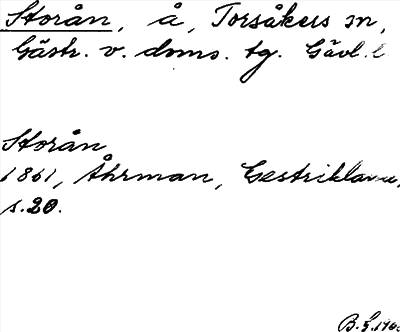 Storån, å, Torsåkers sn,
Gästr. v. doms. tg. Gävl. l
Storån
1861, Åhrman, Gestrikland,
s. 20.